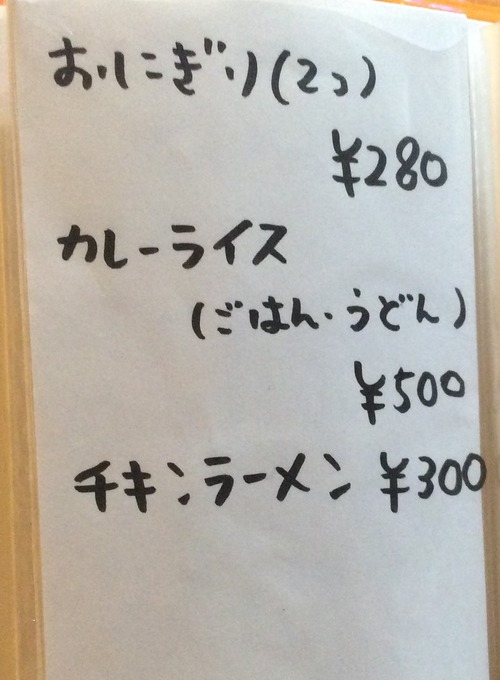 おにぎり(2コ)
¥280
カレーライス
(ごはん・うどん)
¥500
チキンラーメン ¥300